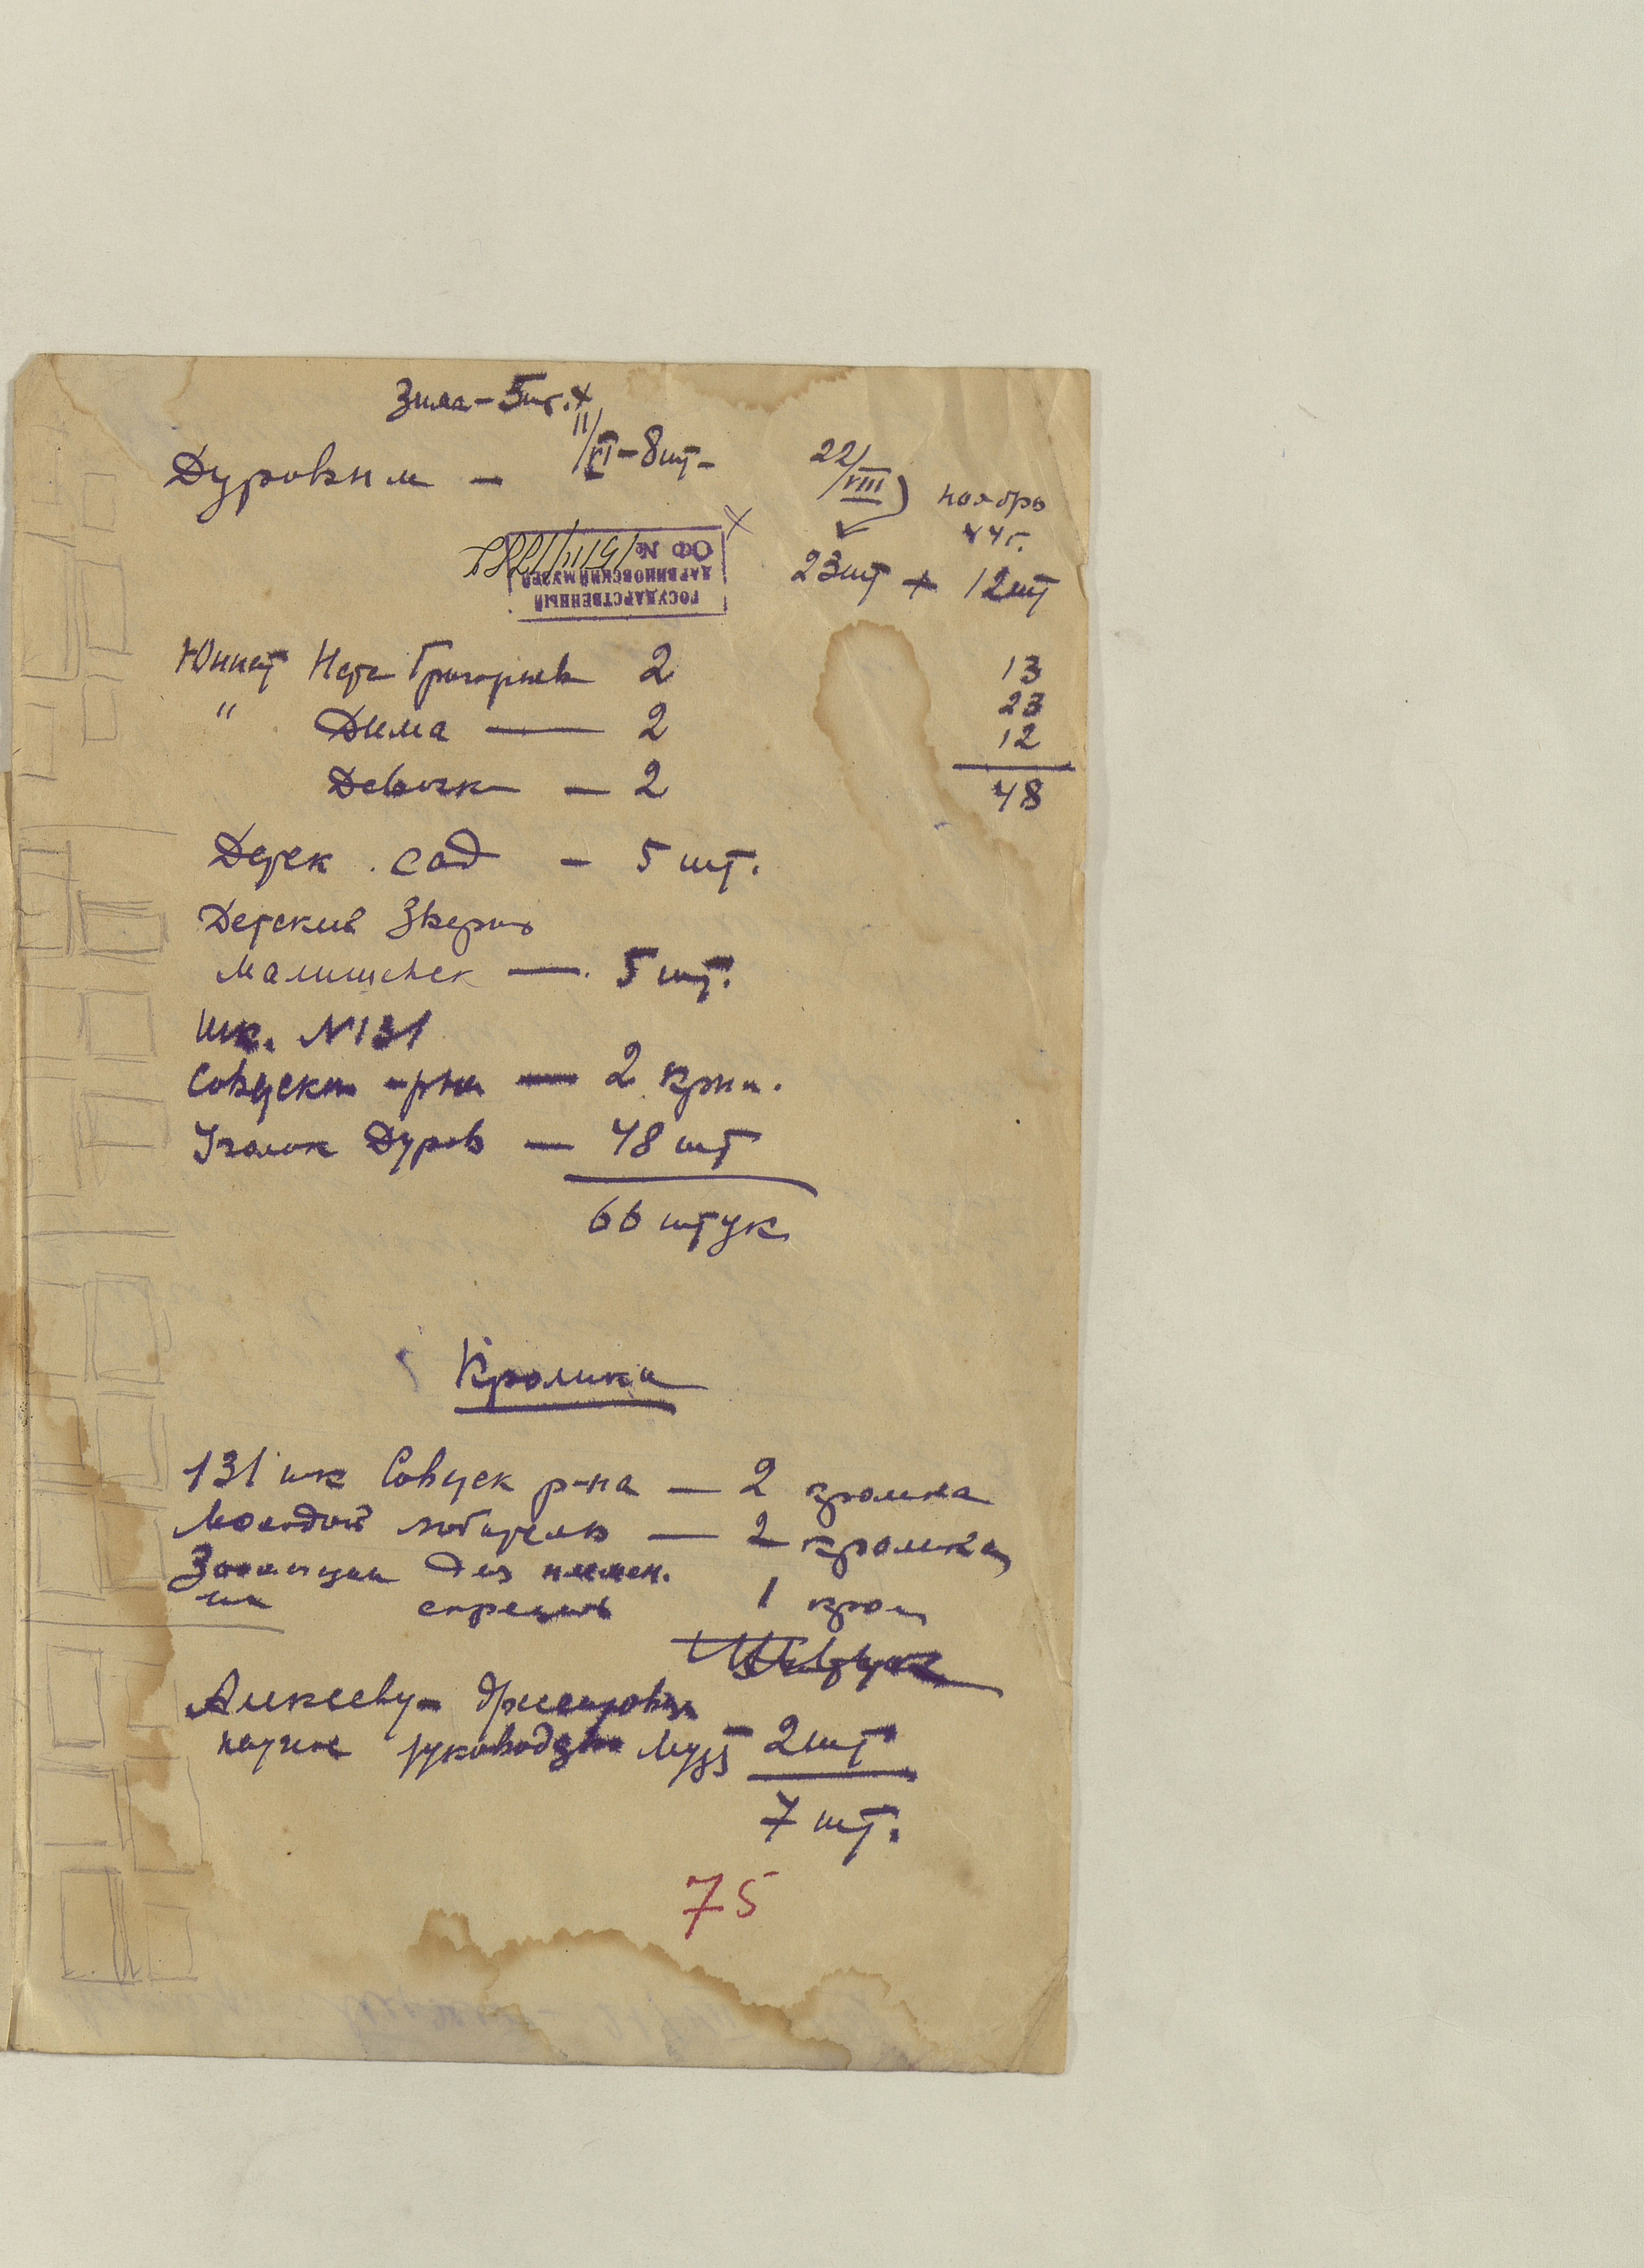 Зима – 5 шт. +
Дуровым – 11/VI – 8 шт –
22/VIII) ноябрь
44 г.
23 шт + 12 шт
ГОСУДАРСТВЕННЫЙ
ДАРВИНОВСКИЙ МУЗЕЙ
ОФ №
Юннат Петя Григорьев 2
" Дима — 2
Девочк — 2
13
23
12
48
Детск. сад – 5 шт.
Детский Зверин
Малышевск — 5 шт.
шк. N 131
Советском р-на — 2 крол.
Уголок Дуров — 48 шт
66 штук
Кролики
131 шк Советск р-на — 2 кролика
Молодой любитель — 2 кролика
для племен.
1 крол
Алексеву – дрессировщ
научное руководство Муз 2 шт
7 шт.
75